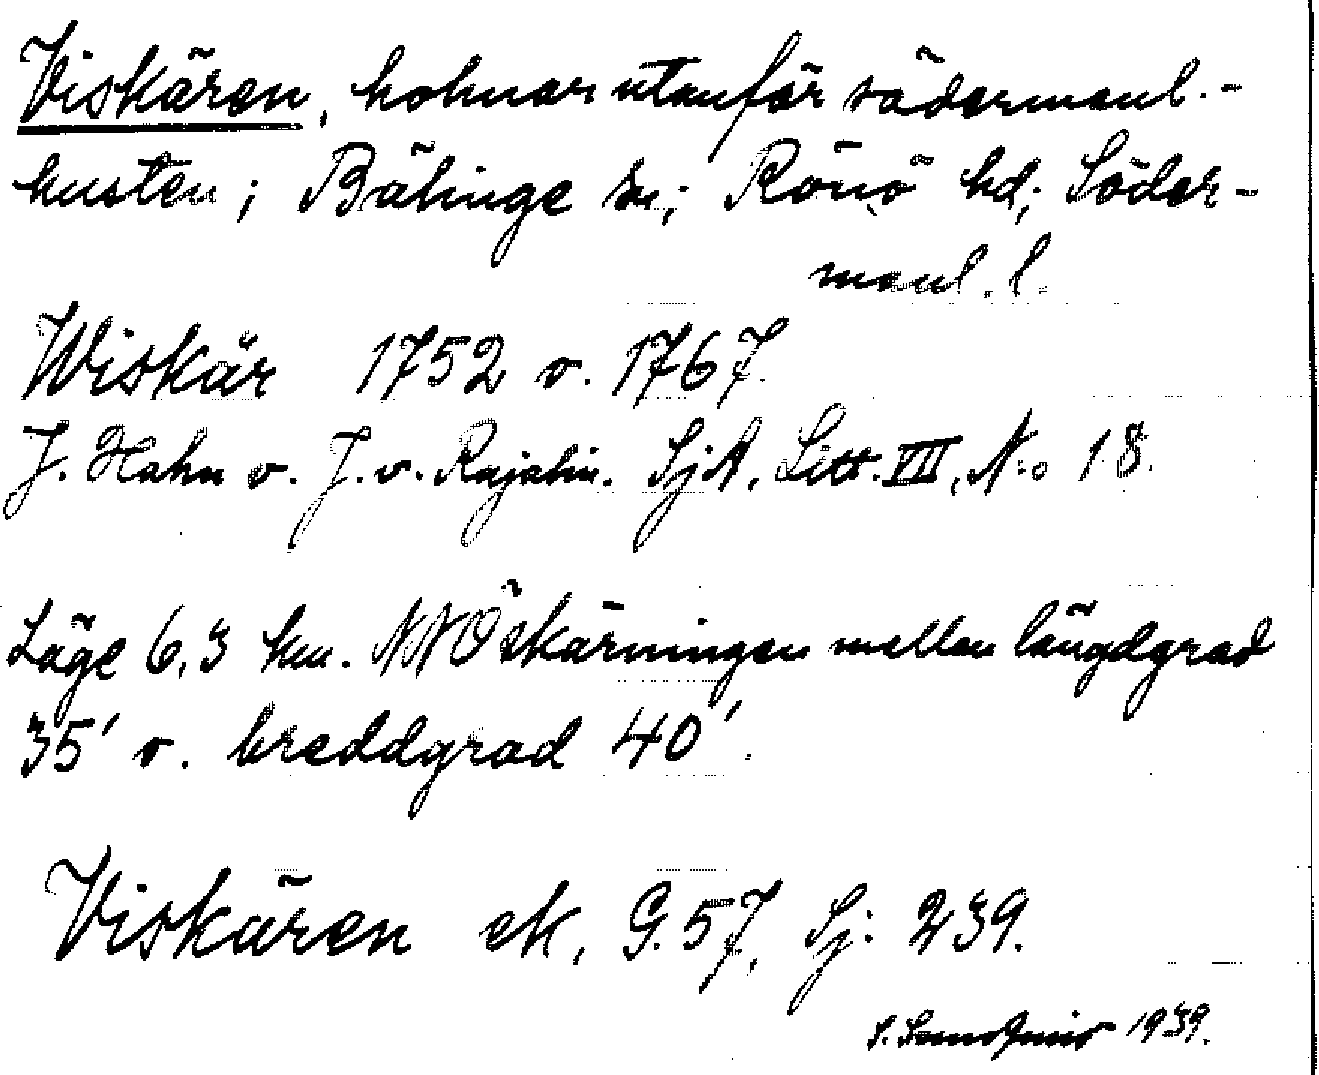 Viskären, holmar utanför södermanl.-
kusten; Bälinge sn; Rönö hd; Söder-
manl. l.
Wiskär 1752 o. 1767.
J. Hahn o. J. v. Rajalin. SjA, Litt. VIII, N:o 18.
Läge 6,3 km. NNÖ skärningen mellan längdgrad
35' o. breddgrad 40'.
Viskären ek, G. 57, Sj: 239.
1939.